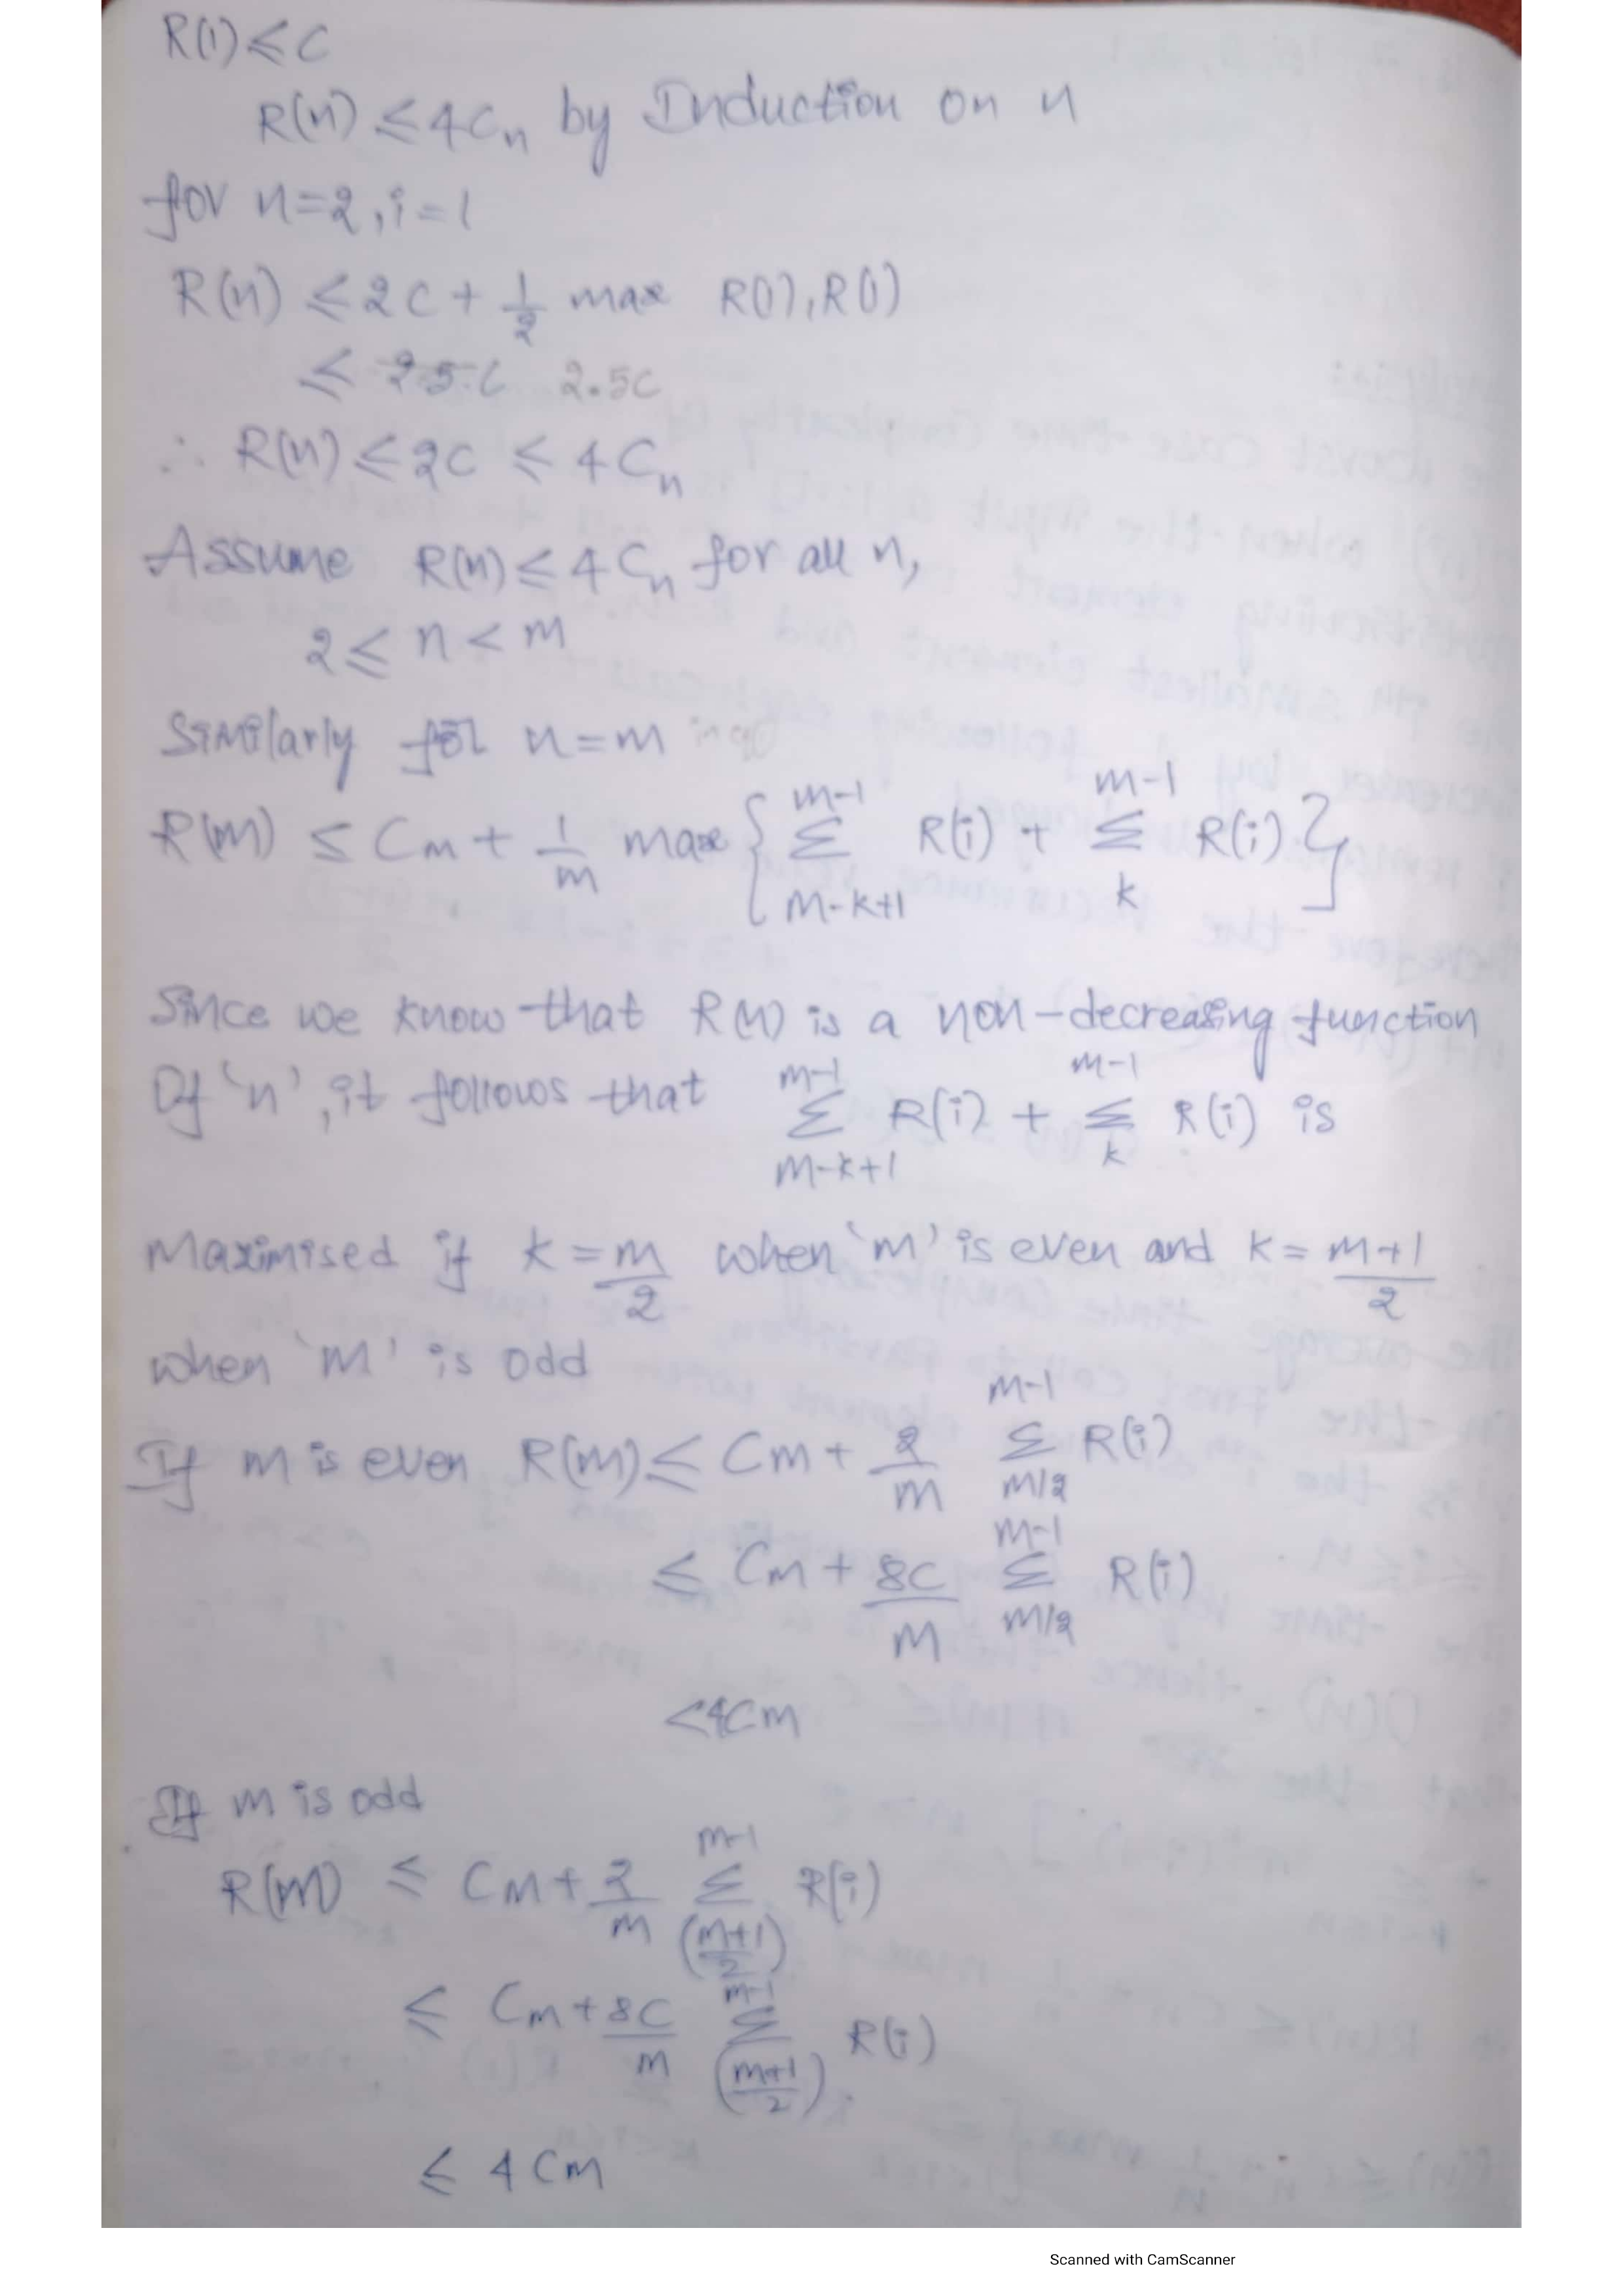 R(1) ≤ C
R(n) ≤ 4Cn by Induction on n
for n=2, i=1
R(n) ≤ 2C + 1/2 max R(1), R(1)
≤ 2.5C 2.5C
∴ R(n) ≤ 2C ≤ 4Cn
Assume R(n) ≤ 4Cn for all n,
2 ≤ n < m
Similarly for n=m
R(m) ≤ Cm + 1/m max { Σ_{m-k+1}^{m-1} R(i) + Σ_{k}^{m-1} R(i) }
Since we know that R(n) is a non-decreasing function
Of 'n', it follows that Σ_{m-k+1}^{m-1} R(i) + Σ_{k}^{m-1} R(i) is
Maximised if k = m/2 when 'm' is even and k = m+1/2
when 'm' is odd
If m is even R(m) ≤ Cm + 2/m Σ_{m/2}^{m-1} R(i)
≤ Cm + 8C/m Σ_{m/2}^{m-1} R(i)
<4Cm
If m is odd
R(m) ≤ Cm + 2/m Σ_{(m+1/2)}^{m-1} R(i)
≤ Cm + 8C/m Σ_{(m+1/2)}^{m-1} R(i)
≤ 4Cm
Scanned with CamScanner